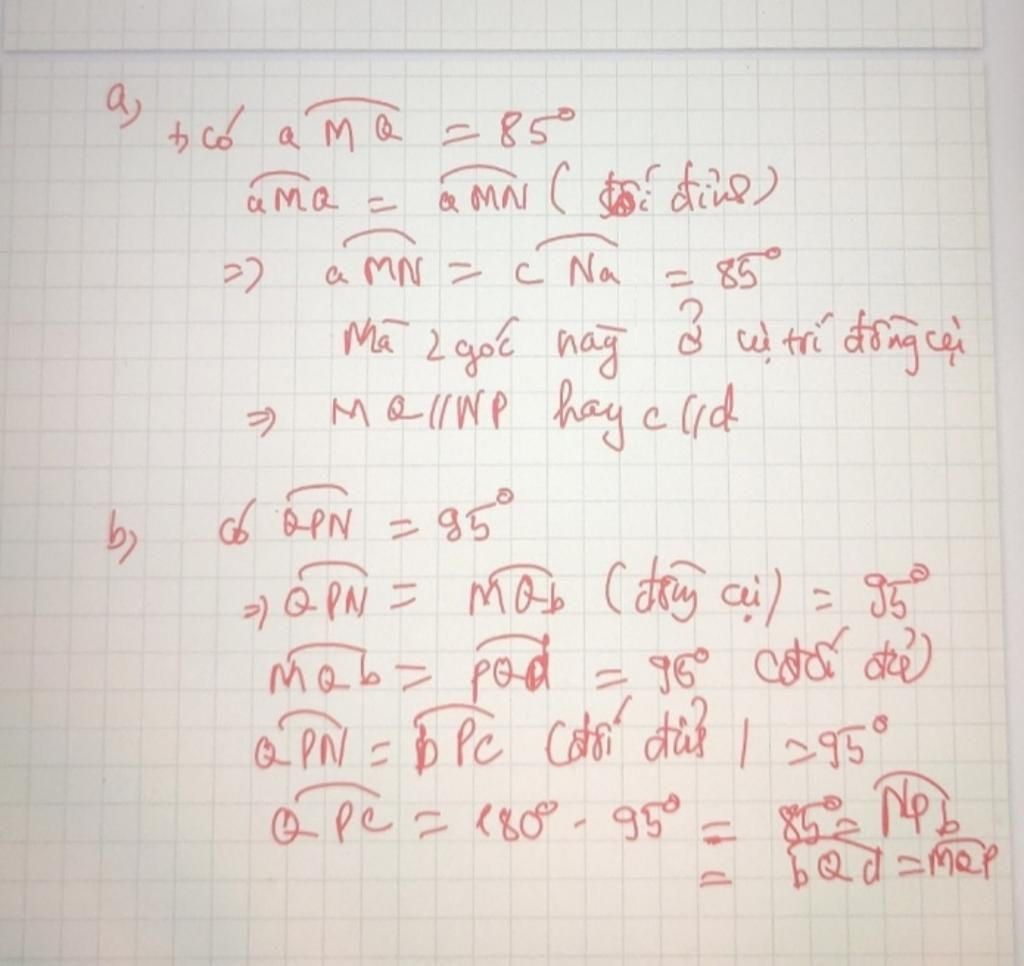 a,
+ có aMQ = 85°
aMQ = aMN ( đối đỉnh)
=> aMN = cNa = 85°
Mà 2 góc này ở vị trí đồng vị
=> MQ // NP hay c // d
b, có QPN = 95°
=> QPN = MQb (đồng vị) = 95°
MQb = PQd = 95° (đối đỉ)
QPN = bPc (đối đỉnh) = 95°
QPC = 180° - 95° = 85° = NPb
= bQd = MQP